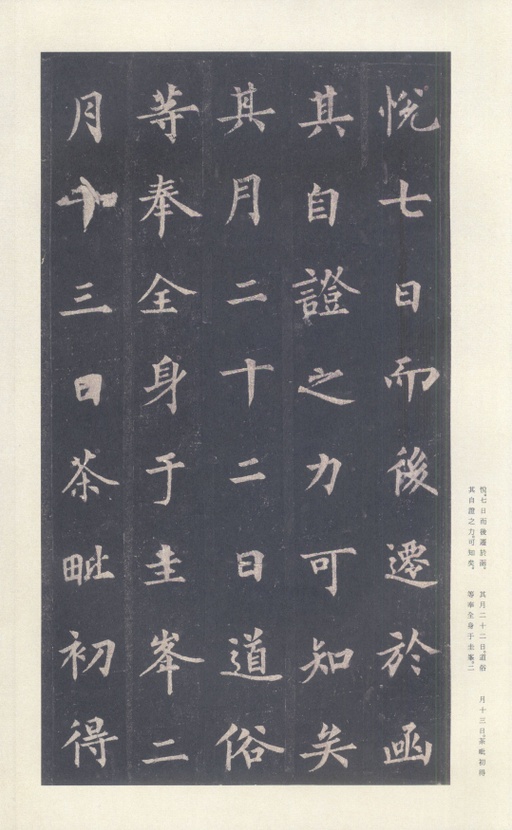 悅七日而後遷於函
其自證之力可知矣
其月二十二日道俗
等奉全身于圭峯二
月十三日荼毗初得
悅。七日而後遷於函。
其自證之力。可知矣。
其月二十二日。道俗
等奉全身于圭峯。二
月十三日。荼毗初得